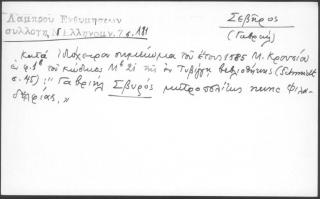 Λάμπρου Ενθυμήσεων
συλλογή, Ν. Ελληνομν. 7 σ. 181
Σεβῆρος
(Γαβριήλ)
κατά ἰδιόχειρον σημείωμα τοῦ ἔτους 1585 Μ. Κρουσίου
ἐν φ. 1β τοῦ κώδικος Mb 21 τῆς ἐν Τυβίγγῃ βιβλιοθήκης (Schmidt
σ. 45): "Γαβριήλ Σβυρός μητροπολίτης πασης Φιλα-
δελφίας."